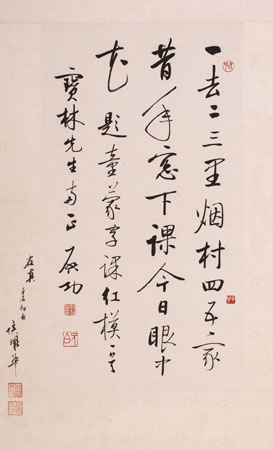 一去二三里烟村四五家
昔年窓下课今日眼中
花 题童蒙字课红模一首
寶林先生两正 启功
真
侯耀华